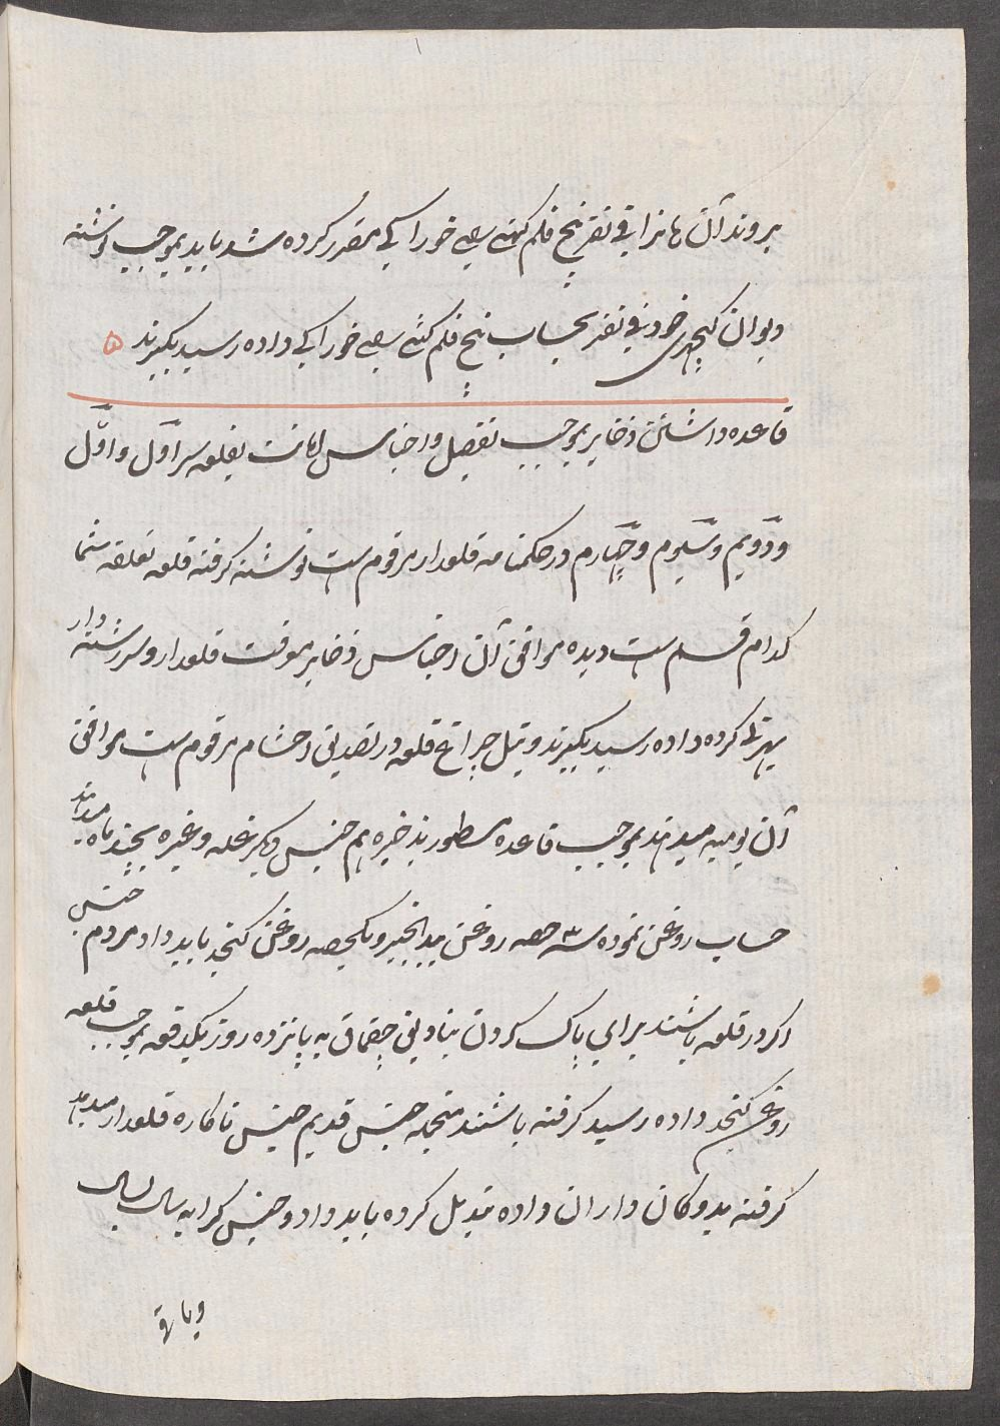 بروند آن هانرا فی نفر پنج فلم کهنه بعی خوراکی مقرر کرده شد باید بموجب نوشته
دیوان کچهری خود فی نفر بحساب پنج فلم کهنه بعی خوراکی داده رسید بگیرند ۵
قاعده داشتن ذخایر بموجب تفصیل و اجناس امانت بقلعه سر اول و اول
و دویم و سیوم و چهارم در حکمنامه قلعدار مرقوم ست نوشته گرفته قلعه تعلقه شما
کدام قسم ست دیده موافق آن اجناس ذخایر بموقت قلعدار و سررشته دار
بهرتی کرده داده رسید بگیرند و تیل چراغ قلعه در تصدیق احشام مرقوم ست موافق
آن یومیه میدهند بموجب قاعده مسطور بذخیره هم جنس دیگر غله و غیره بچند ماه میدهند
حساب روغن نموده سه ۳ حصه روغن بیدانجیر و یکحصه روغن کنجد باید داد مردم جنسی
اگر در قلعه باشند برای پاک کردن بنادیق چقماق به پانزده روز یکدفعه بموجب قلعه
روغن کنجد داده رسید گرفته باشند منجمله جنس قدیم جنس ناکاره قلعدار میدهد
گرفته بدوکان داران داده تبدیل کرده باید داد و جنس کرانه سال بسال
و باقی